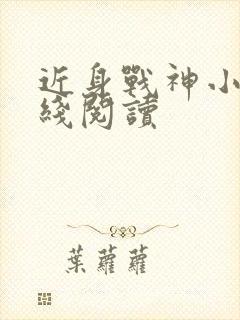 近身戰神小
綫閱讀
葉蘿蘿